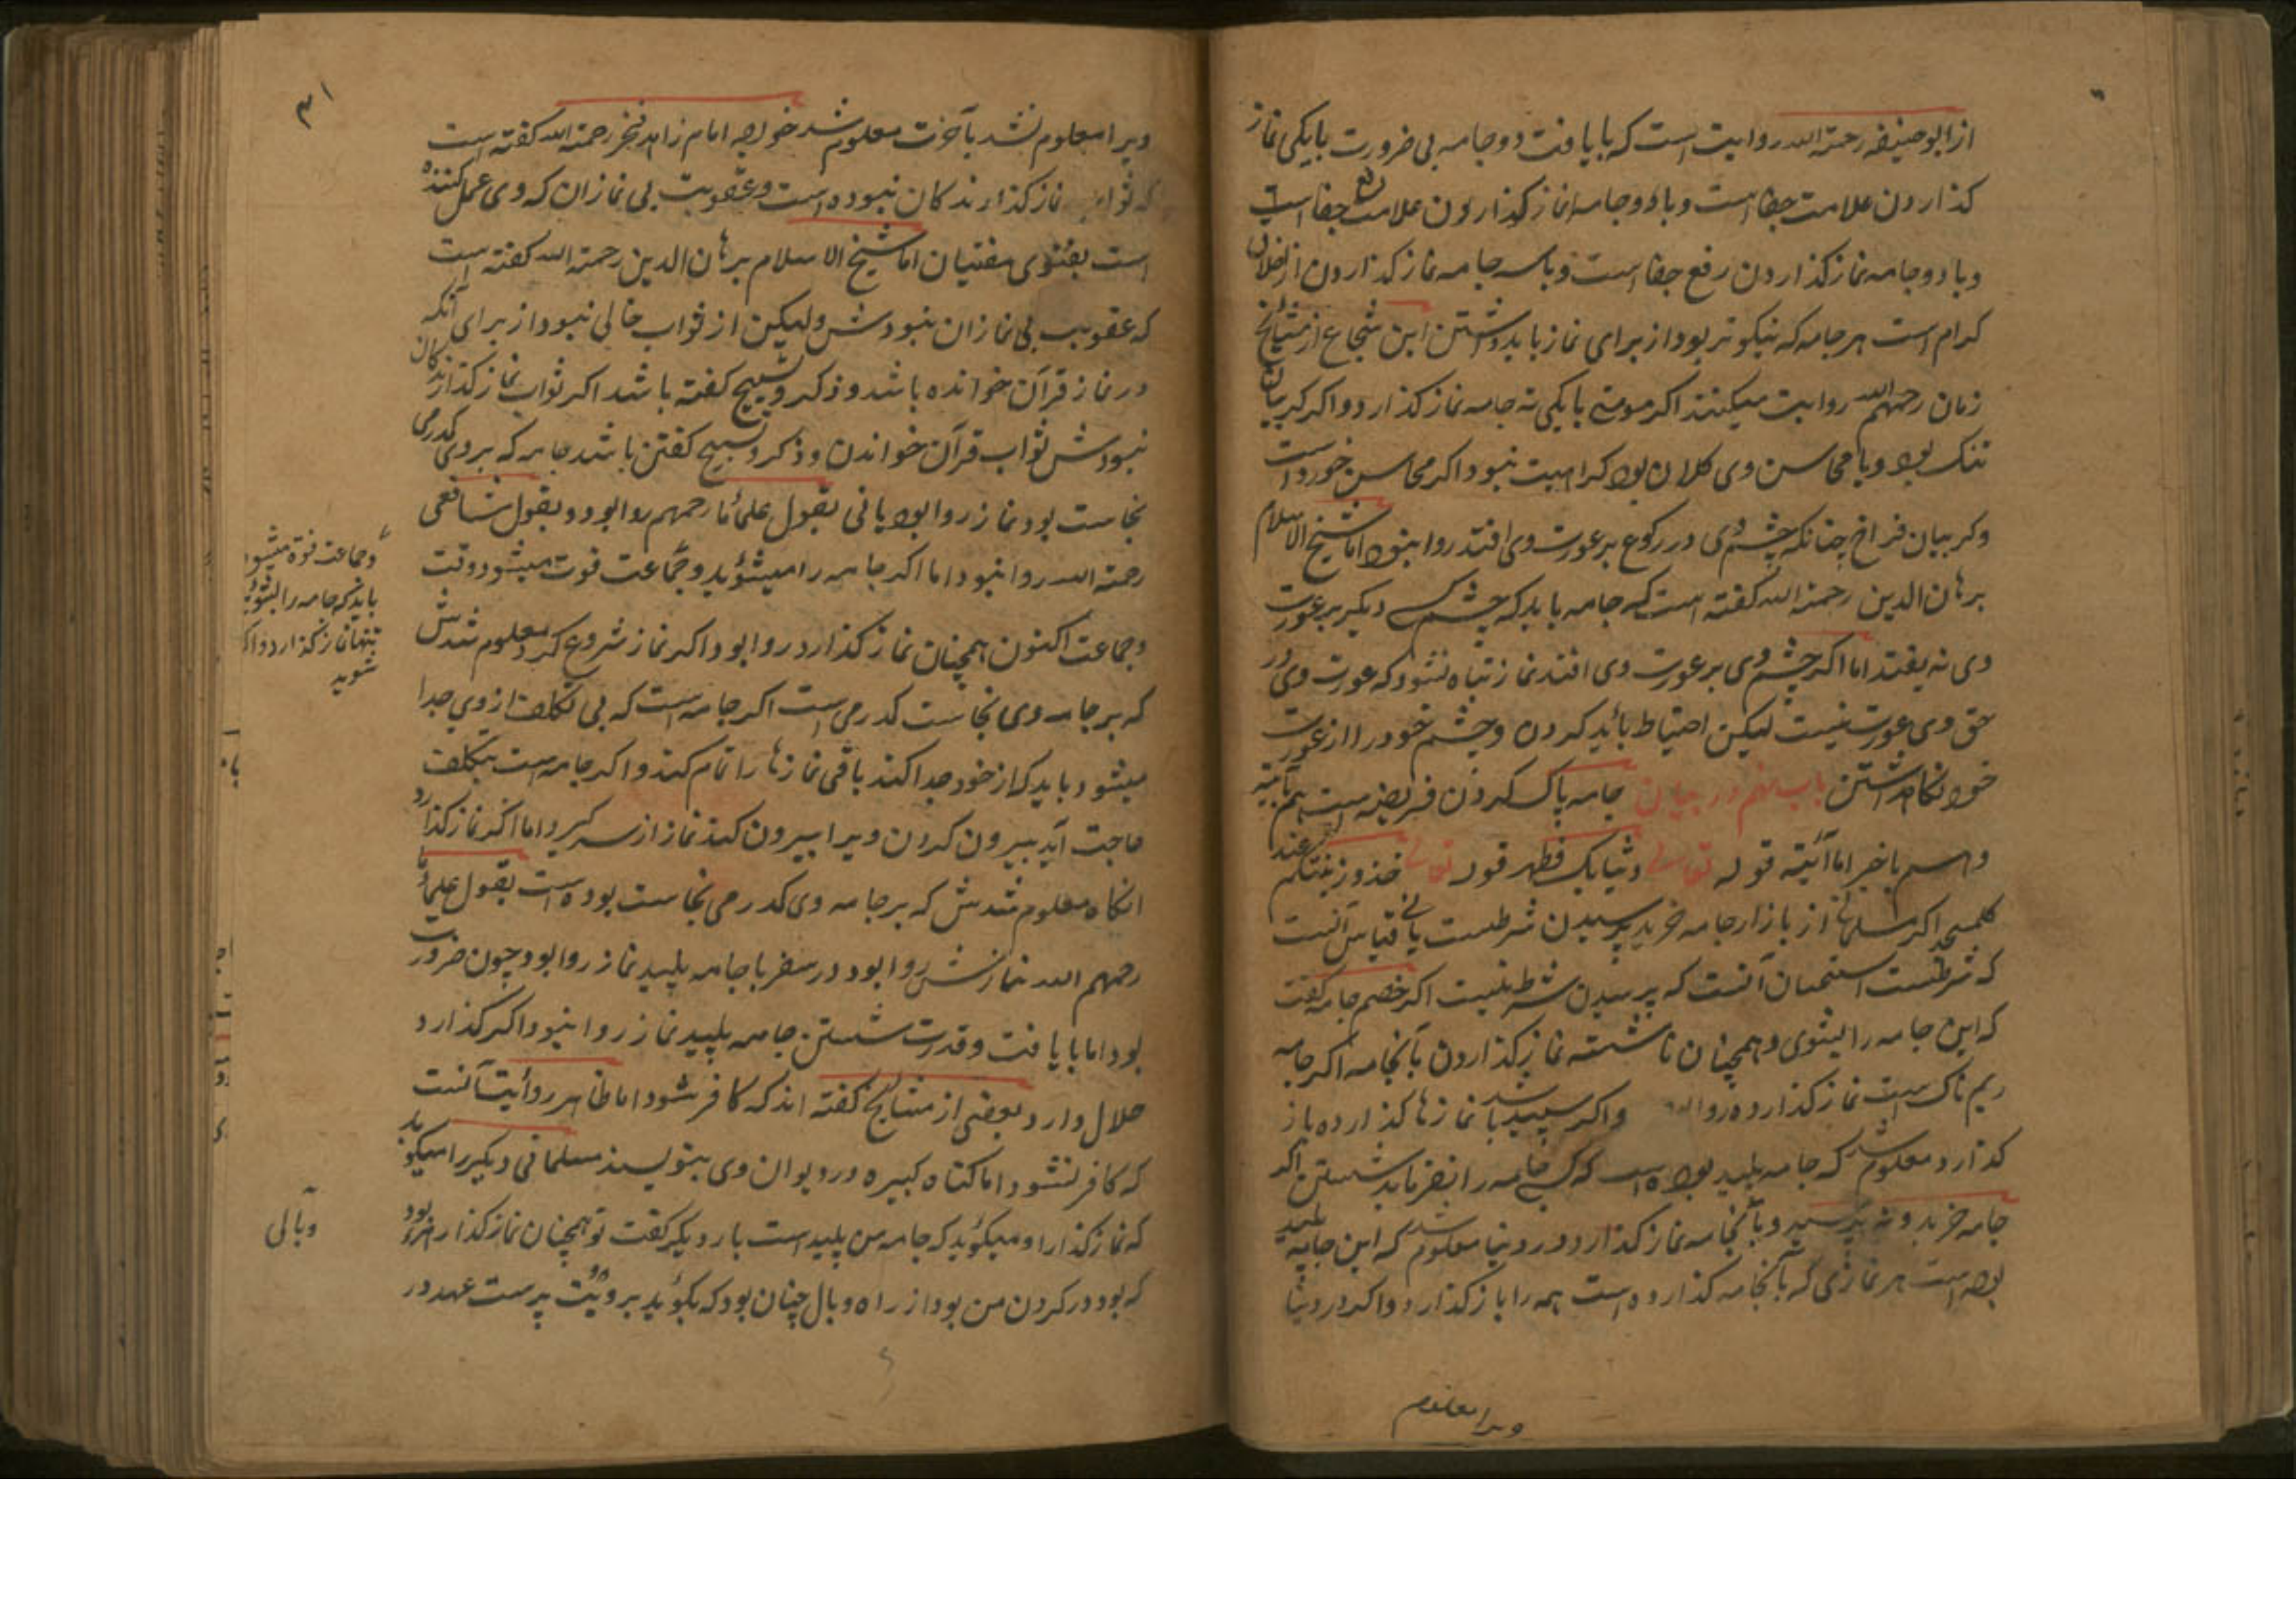 از ابو حنیفه رحمة الله روایت است که با یافت دو جامه بی ضرورت با یکی نماز
کذاردن علامت جفا است و با دو جامه نماز کذاردن علامت رفع جفا است
و با دو جامه نماز کذاردن رفع جفا است و با سه جامه نماز کذاردن از اخلاق
کرام است هر جامه که نیکوتر بود از برای نماز باید داشتن ابن شجاع از مشایخ
زمان رحمهم الله روایت میکنند اکر مومنی با یکی ته جامه نماز کذارد و اکر کریبان
تنک بود و یا محاسن وی کلان بود کراهیت نبود اکر محاسن خورد است
و کریبان فراخ چنانکه چشم وی در رکوع بر عورت وی افتد روا نبود اما شیخ الاسلام
برهان الدین رحمة الله کفته است که جامه باید که چشم کسی دیکر بر عورت
وی نه یفتد اما اکر چشم وی بر عورت وی افتد نماز تباه نشود که عورت وی در
حق وی عورت نیست لیکن احتیاط باید کردن و چشم خود را از عورت
خود نکاه داشتن باب نهم در بیان جامه پاک کردن فریضه است هم بآیته
و هم باخبر اما آیته قوله تعالی وثیابک فطهر قوله تعالی خذوا زینتکم عند
کل مسجد اکر مسلمانی از بازار جامه خرید پرسیدن شرطست یا نی قیاس آنست
که شرطست استحسان آنست که پرسیدن شرط نیست اکر خصم جامه کفت
که این جامه را بشوی و همچنان ناشسته نماز کذاردن بآنجامه اکر جامه
ریم ناک است نماز کذارده روا بود و اکر سپید باشد نمازها کذارده باز
کذارد معلوم شد که جامه پلید بوده است که کسی جامه را نفرماید شستن اکر
جامه خرید و نه پرسید و بآنجامه نماز کذارد و در دنیا معلوم شد که این جامه پلید
بوده است هر نمازی که بآنجامه کذارده است همه را باز کذارد و اکر در دنیا
ویرا معلوم
۳۱
ویرا معلوم نشد بآخرت معلوم شد خواجه امام زاهد فخر رحمة الله کفته است
که ثواب نماز کذارندکان نبوده است و عقوبت بی نمازان که وی عمل کننده
است بفتوی مفتیان اما شیخ الاسلام برهان الدین رحمة الله کفته است
که عقوبت بی نمازان نبودش ولیکن از ثواب خالی نبود از برای آنکه
در نماز قرآن خوانده باشد و ذکر و تسبیح کفته باشد اکر ثواب نماز کذارندکان
نبودش ثواب قرآن خواندن و ذکر و تسبیح کفتن باشد جامه که بر وی کدرمی
نجاست بود نماز روا بود یا نی بقول علمأما رحمهم روا بود و بقول شافعی
رحمة الله روا نبود اما اکر جامه را میشوید و جماعت فوت میشود وقت
و جماعت اکنون همچنان نماز کذارد روا بود و اکر نماز شروع کرد معلوم شدش
که بر جامه وی نجاست کدرمی است اکر جامه است که بی تکلف از وی جدا
میشود باید که از خود جدا کند باقی نمازها را تمام کند و اکر جامه است بتکلف
حاجت آید بیرون کردن ویرا بیرون کند نماز از سر کیرد اما اکر نماز کذارد
انکاه معلوم شدش که بر جامه وی کدرمی نجاست بوده است بقول علمأ
رحمهم الله نمازش روا بود در سفر با جامه پلید نماز روا بود چون ضرورت
بود اما با یافت و قدرت شستن جامه پلید نماز روا نبود و اکر کذارد
حلال دارد بعضی از مشایخ کفته اند که کافر شود اما ظاهر روایت آنست
که کافر نشود اما کناه کبیره در دیوان وی بنویسند مسلمانی دیکر را میکوید
که نماز کذار او میکوید که جامه من پلید است بار دیکر کفت تو همچنان نماز کذار
که بود در کردن من بود از راه وبال چنان بود که بکوید برو بت پرست عهد در
و جماعت فوة میشود
باید که جامه را بشوید
تنها نماز کذارد و اکر
شوید
وبالی